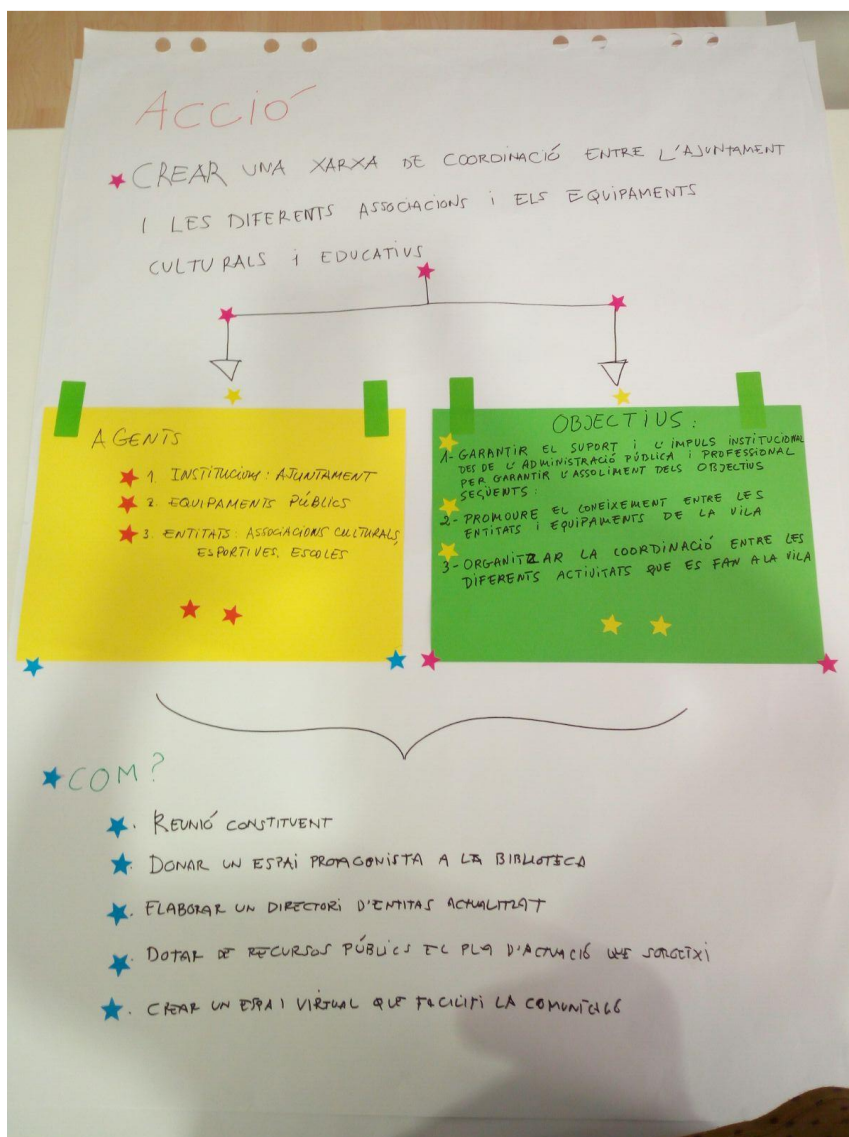 Acció
CREAR UNA XARXA DE COORDINACIÓ ENTRE L'AJUNTAMENT
I LES DIFERENTS ASSOCIACIONS i ELS EQUIPAMENTS
CULTURALS i EDUCATIUS
AGENTS
1. INSTITUCIONS: AJUNTAMENT
2. EQUIPAMENTS PÚBLICS
3. ENTITATS: ASSOCIACIONS CULTURALS,
ESPORTIVES, ESCOLES
OBJECTIUS:
1- GARANTIR EL SUPORT i L'IMPULS INSTITUCIONAL
DES DE L'ADMINISTRACIÓ PÚBLICA i PROFESSIONAL
PER GARANTIR L'ASSOLIMENT DELS OBJECTIUS
SEGÜENTS:
2- PROMOURE EL CONEIXEMENT ENTRE LES
ENTITATS i EQUIPAMENTS DE LA VILA
3- ORGANITZAR LA COORDINACIÓ ENTRE LES
DIFERENTS ACTIVITATS QUE ES FAN A LA VILA
COM?
. REUNIÓ CONSTITUENT
. DONAR UN ESPAI PROTAGONISTA A LA BIBLIOTECA
. ELABORAR UN DIRECTORI D'ENTITAS ACTUALITZAT
. DOTAR DE RECURSOS PÚBLICS EL PLA D'ACTUACIÓ QUE SORGEIXI
. CREAR UN ESPAI VIRTUAL QUE FACILITI LA COMUNICACIÓ